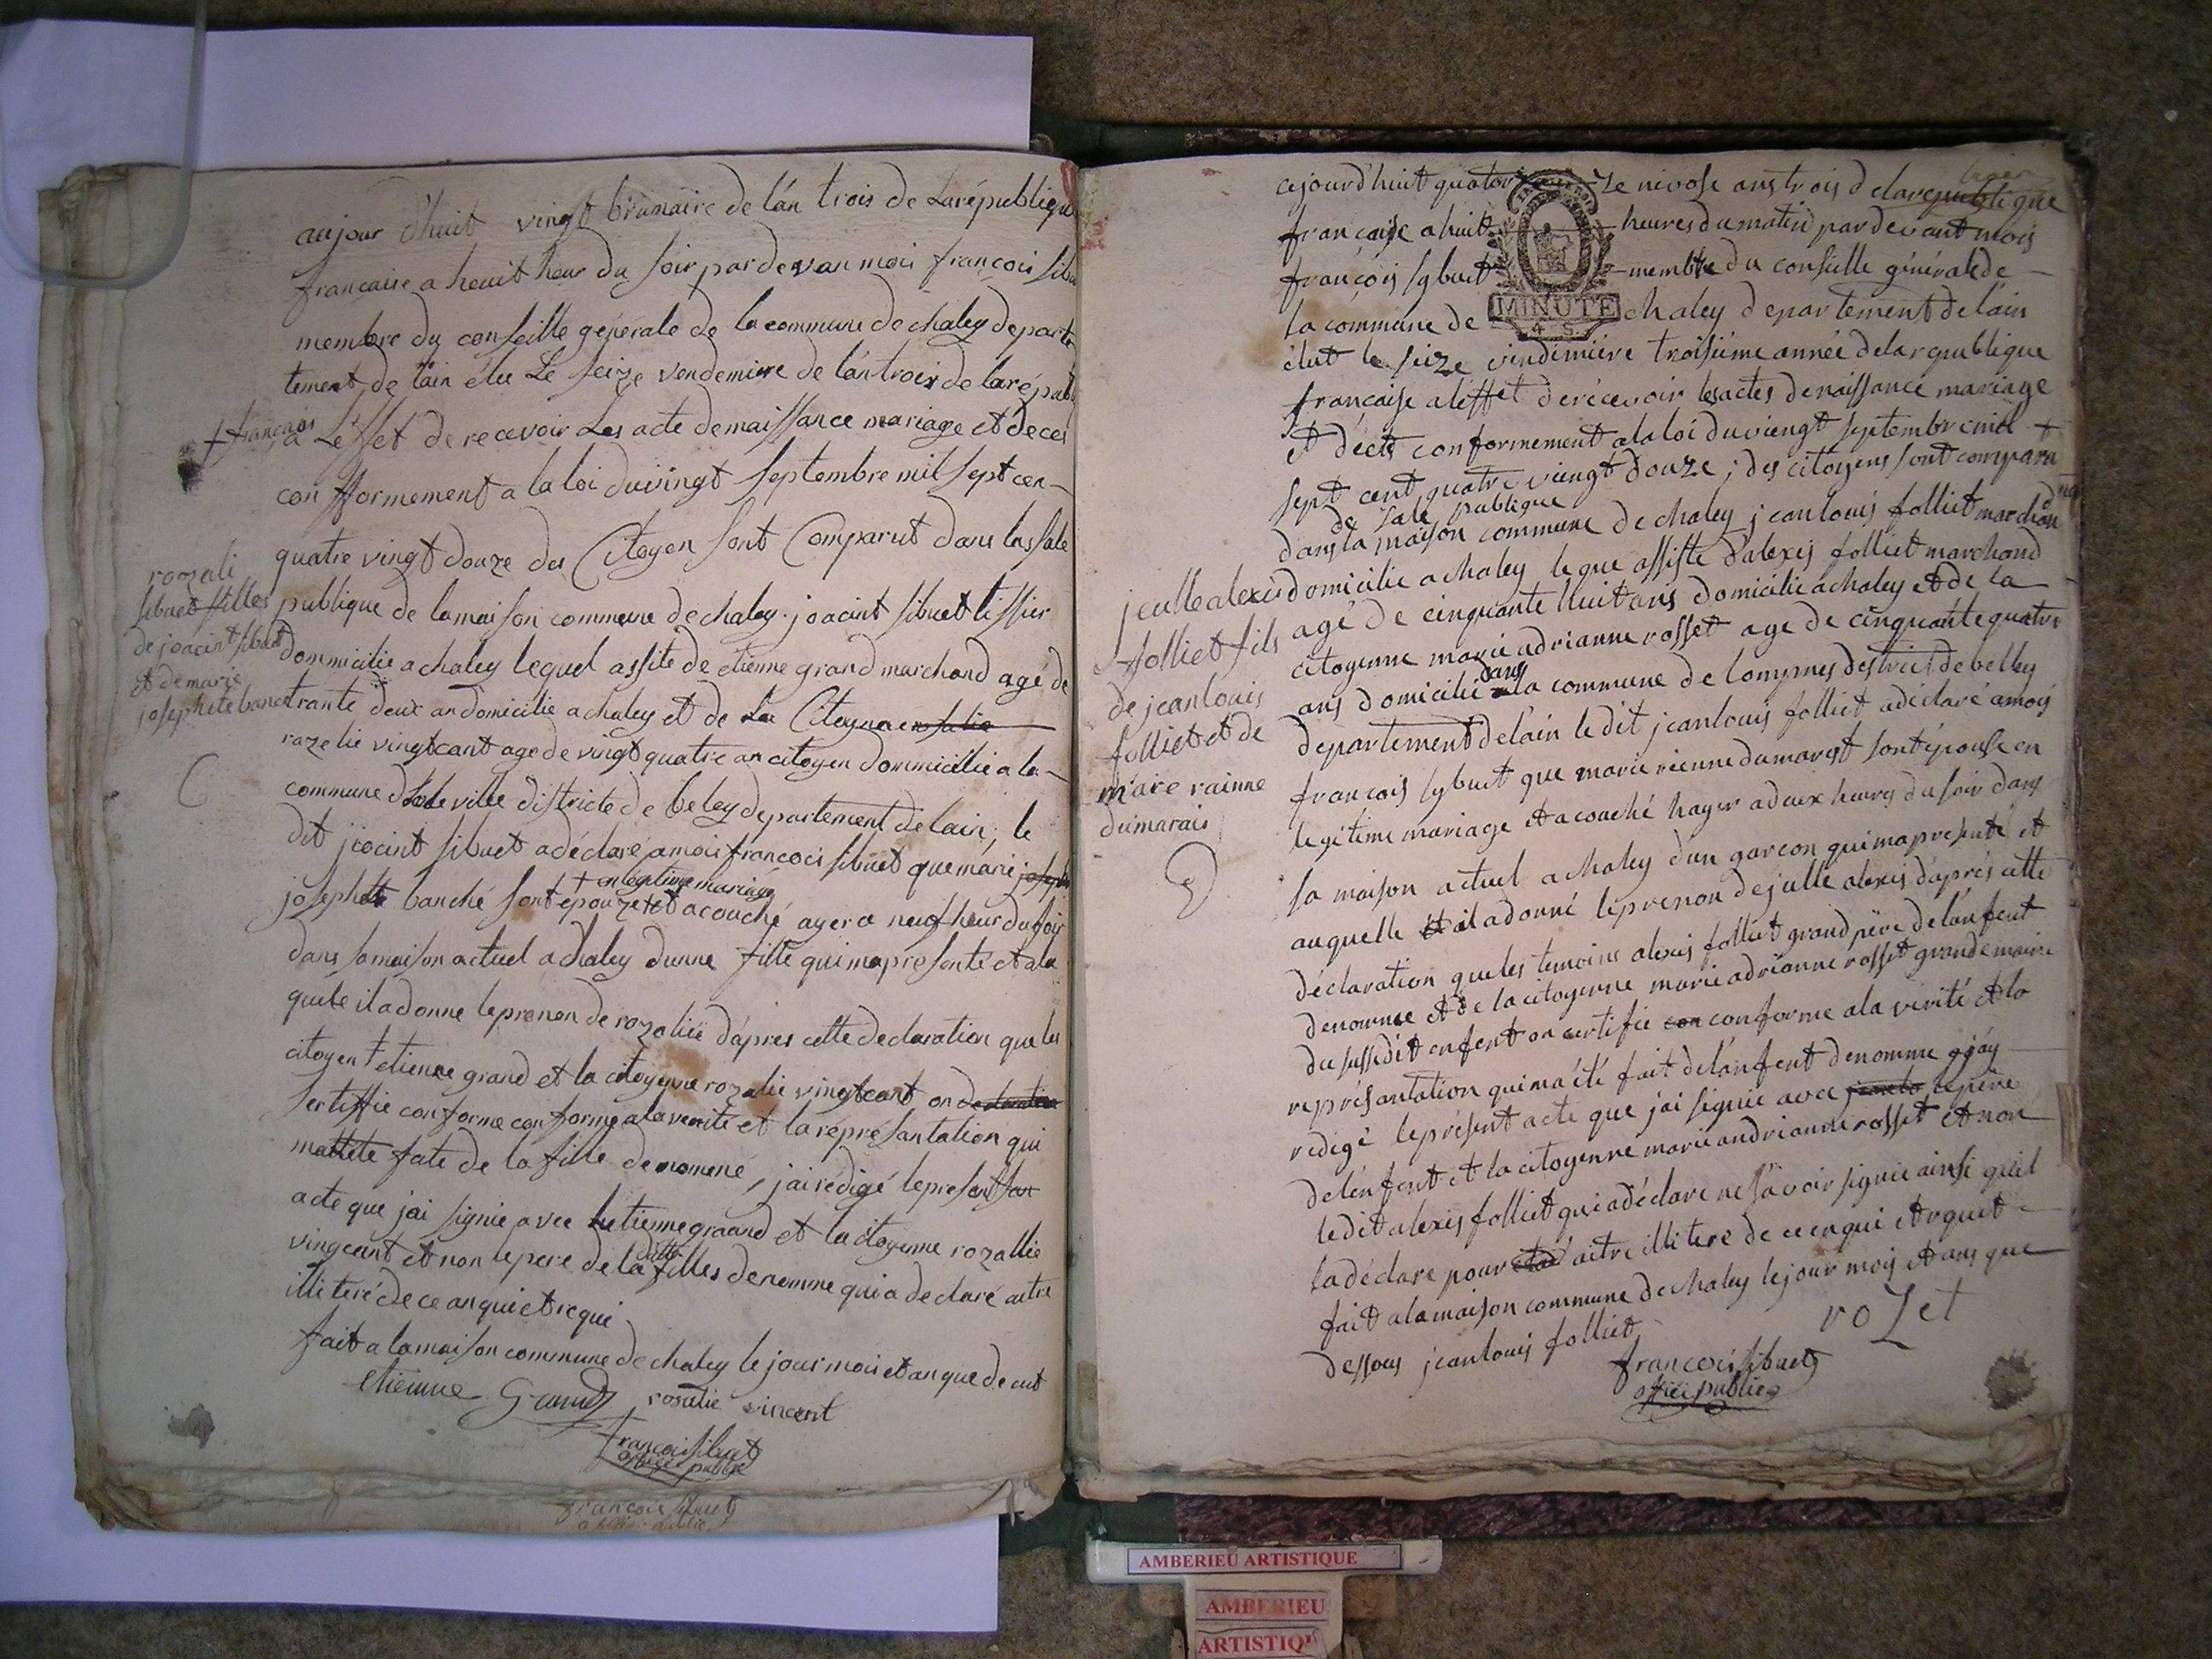 aujour d'huit vingt brumaire de l'an trois de la république
francaise a heuit heur du soir par devan moi françois sibu
membre du conseille générale de la commune de chaley departe
tement de l'ain élu Le seize vendemiere de l'an trois de la répub
+ français
a L'éffet de recevoir Les acte de naissance mariage et déces
confformement a la loi du vingt septembre mil sept cen
quatre vingt douze des Citoyen sont Comparut dans la sale
publique de la maison commune de chaley joacint sibuet tissier
dommicilie a chaley lequel assite de etienne grand marchand agé de
trante deux an domicilie a chaley et de La Citoyne rosalie
razelie vingtcant age de vingt quatre an citoyen dommicilie a la
commune d'odeville districte de beley departement de l'ain, le
dit jioacint sibuet a déclaré a moi francoci sibuet que marie joseph
+ en légitime mariage
josephette banché sont épouze et a couché ayer a neuf heur du soir
dans sa maison actuel a chaley dunne fille qui ma présenté et a la
quele il a donne le prenon de rozaliée d'apres cette declaration que les
citoyen + etienne grand et la citoyenne rozalie vingtcant on declaration
sertiffie conforme conforme a la verité et la représantation qui
mattete fate de la fille denomené, j'ai rédigé le present san
acte que j'ai signie avec hetienne graand et la citoyenne rozallie
vingcant et non le pere de la ditte filles denomme qui a declaré aitre
illiteré de ce anquiet requi
fait a la maison commune de chaley le jour moi et an que de cut
etienne Grand rosalie vincent
francoi sibuet
officié public
francois sibuet
officié public
rozali
sibuet filles
de joacint sibuet
et de marie
josephete banet
cejourd'huit quatorze nivose ans trois de la republique
française a huit heures du matin par devant mois
françois sybuet membre du conseille générale de
la commune de chaley departement de l'ain
MINUTE
4. S.
élut le seize vendimiére troisième année de la republique
francaise a l'effet de récevoir les actes de naissance mariage
et décés conformement a la loi du viengt septembre mil
sept cent quatre viengt douze; des citoyens sont comparu
de sale publique
dans la maison commune de chaley jeanlouis folliet marchan
domicilie a chaley le que assiste d'alexis folliet marchand
agé de cinquante huit ans domicilié a chaley et de la
citoyenne marie adrianne rosset age de cinquante quatre
ans domicilié dans la commune de lompnes destrict de belley
departement de l'ain le dit jeanlouis folliet a déclaré a mois
francois sybuet que marie rienne dumarest sont épouse en
legitime mariage et a couché hayer a deux heures du soir dans
sa maison actuel a chaley d'un garcon qui ma presenté et
auquelle et il a donné le prenon de julle alexis d'aprés cette
déclaration que les temoins alexis folliet grand père de l'anfent
denommé et de la citoyenne marie adrianne rosset grande maire
du susdit enfent on certifie con conforme a la vérité et la
représantation qui ma été fait de l'anfent denomme j'ay
redigé le présent acte que j'ai signie avec le père
de l'enfent et la citoyenne marie andrianne rosset et non
le dit alexis folliet qui a déclare ne savoir signie ainsi qu'il
la déclare pour aitre illitere de ce enqui et requet
fait a la maison commune de chaley le jour mois et ans que
dessous jeanlouis folliet
roset
francois sibuet
officié public
jeulle alexis
folliet fils
de jean louis
folliet et de
marie rainne
dumarais
AMBERIEU ARTISTIQUE
AMBERIEU
ARTISTIQ